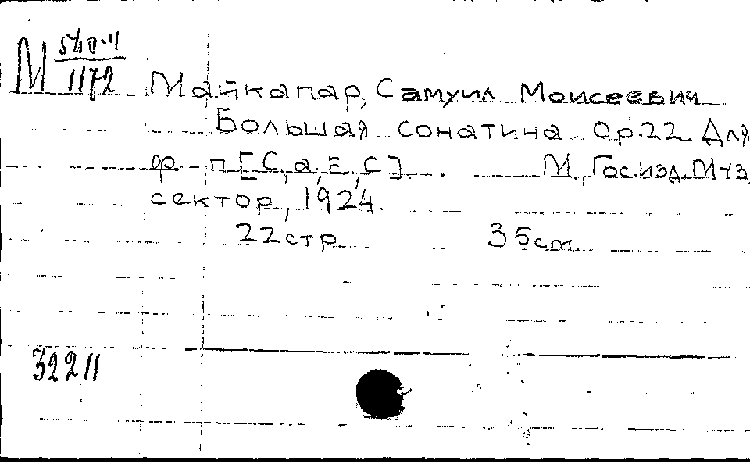 М 540-11
1172
Майкапар, Самуил Моисеевич
Большая сонатина op.22. Для
ф-п [C, a, E, C]. М., Гос.изд. Муз
сектор, 1924.
22 стр. 35 см.
32211